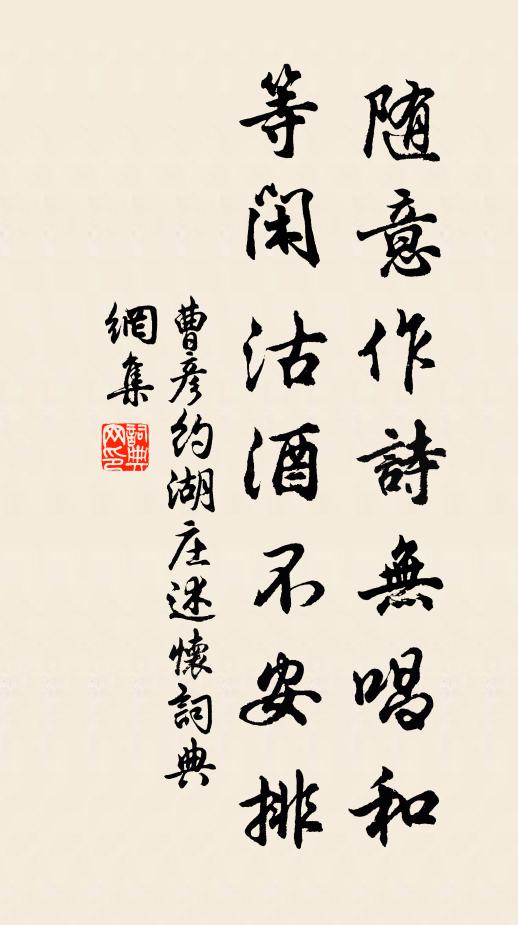 随意作詩無唱和
等閑沽酒不安排
曹彦約湖庄述懷詞典
網集
詞典網印